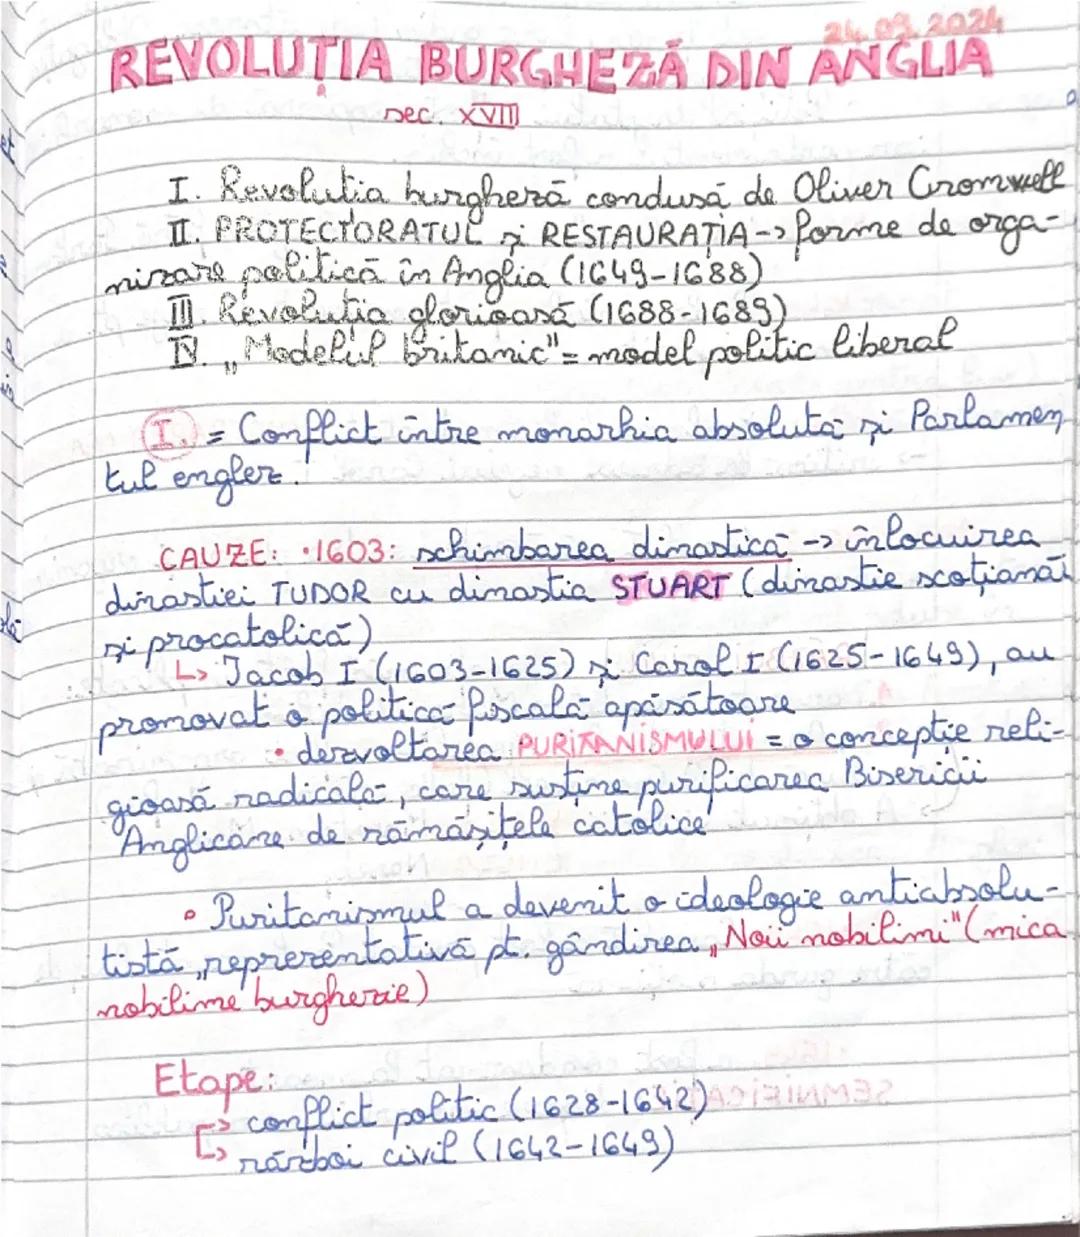 24.09.2024
REVOLUȚIA BURGHEZĂ DIN ANGLIA
sec. XVII
I. Revoluția burgheză condusă de Oliver Cromwell
II. PROTECTORATUL și RESTAURAȚIA -> forme de orga-
nizare politică în Anglia (1649-1688)
III. Revoluția glorioasă (1688-1689)
IV. „Modelul britanic" = model politic liberal
I. = Conflict între monarhia absolută și Parlamen
tul englez.
CAUZE: • 1603: schimbarea dinastică -> înlocuirea
dinastiei TUDOR cu dinastia STUART (dinastie scoțiană
și procatolică)
↳ Jacob I (1603-1625) și Carol I (1625-1649), au
promovat o politică fiscală apăsătoare
• dezvoltarea PURITANISMULUI = o concepție reli-
gioasă radicală, care susține purificarea Bisericii
Anglicane de rămășițele catolice
• Puritanismul a devenit o ideologie antiabsolu-
tistă, reprezentativă pt. gândirea „Noii nobilimi" (mica
nobilime burghezie)
Etape:
-> conflict politic (1628-1642)
-> război civil (1642-1649)